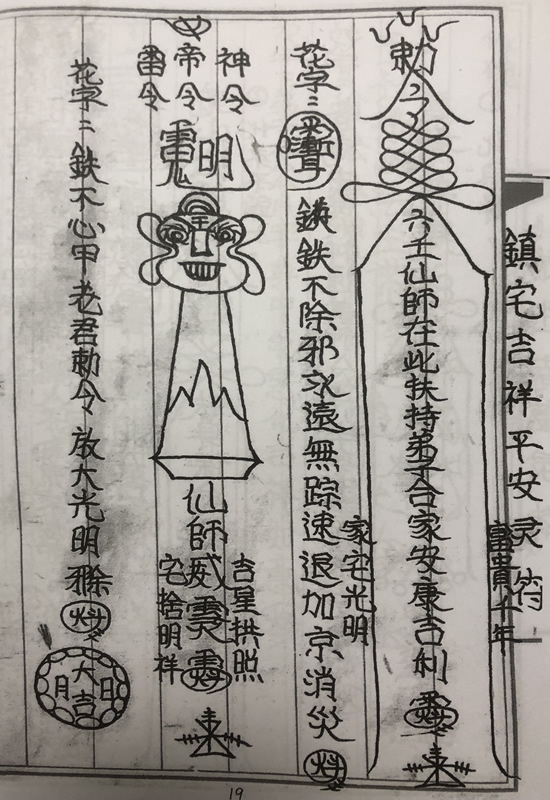 鎮宅吉祥平安灵符
勅令
六壬仙師在此扶持弟子合家安康吉利
富貴千年
家宅光明
花字:
鉄不除邪永遠無踪速退加京消災
神令
帝令
雷令
明
仙師威灵
吉星拱照
宅捨明祥
花字:鉄不心甲老君勅令放大光明
大吉
日
月
19